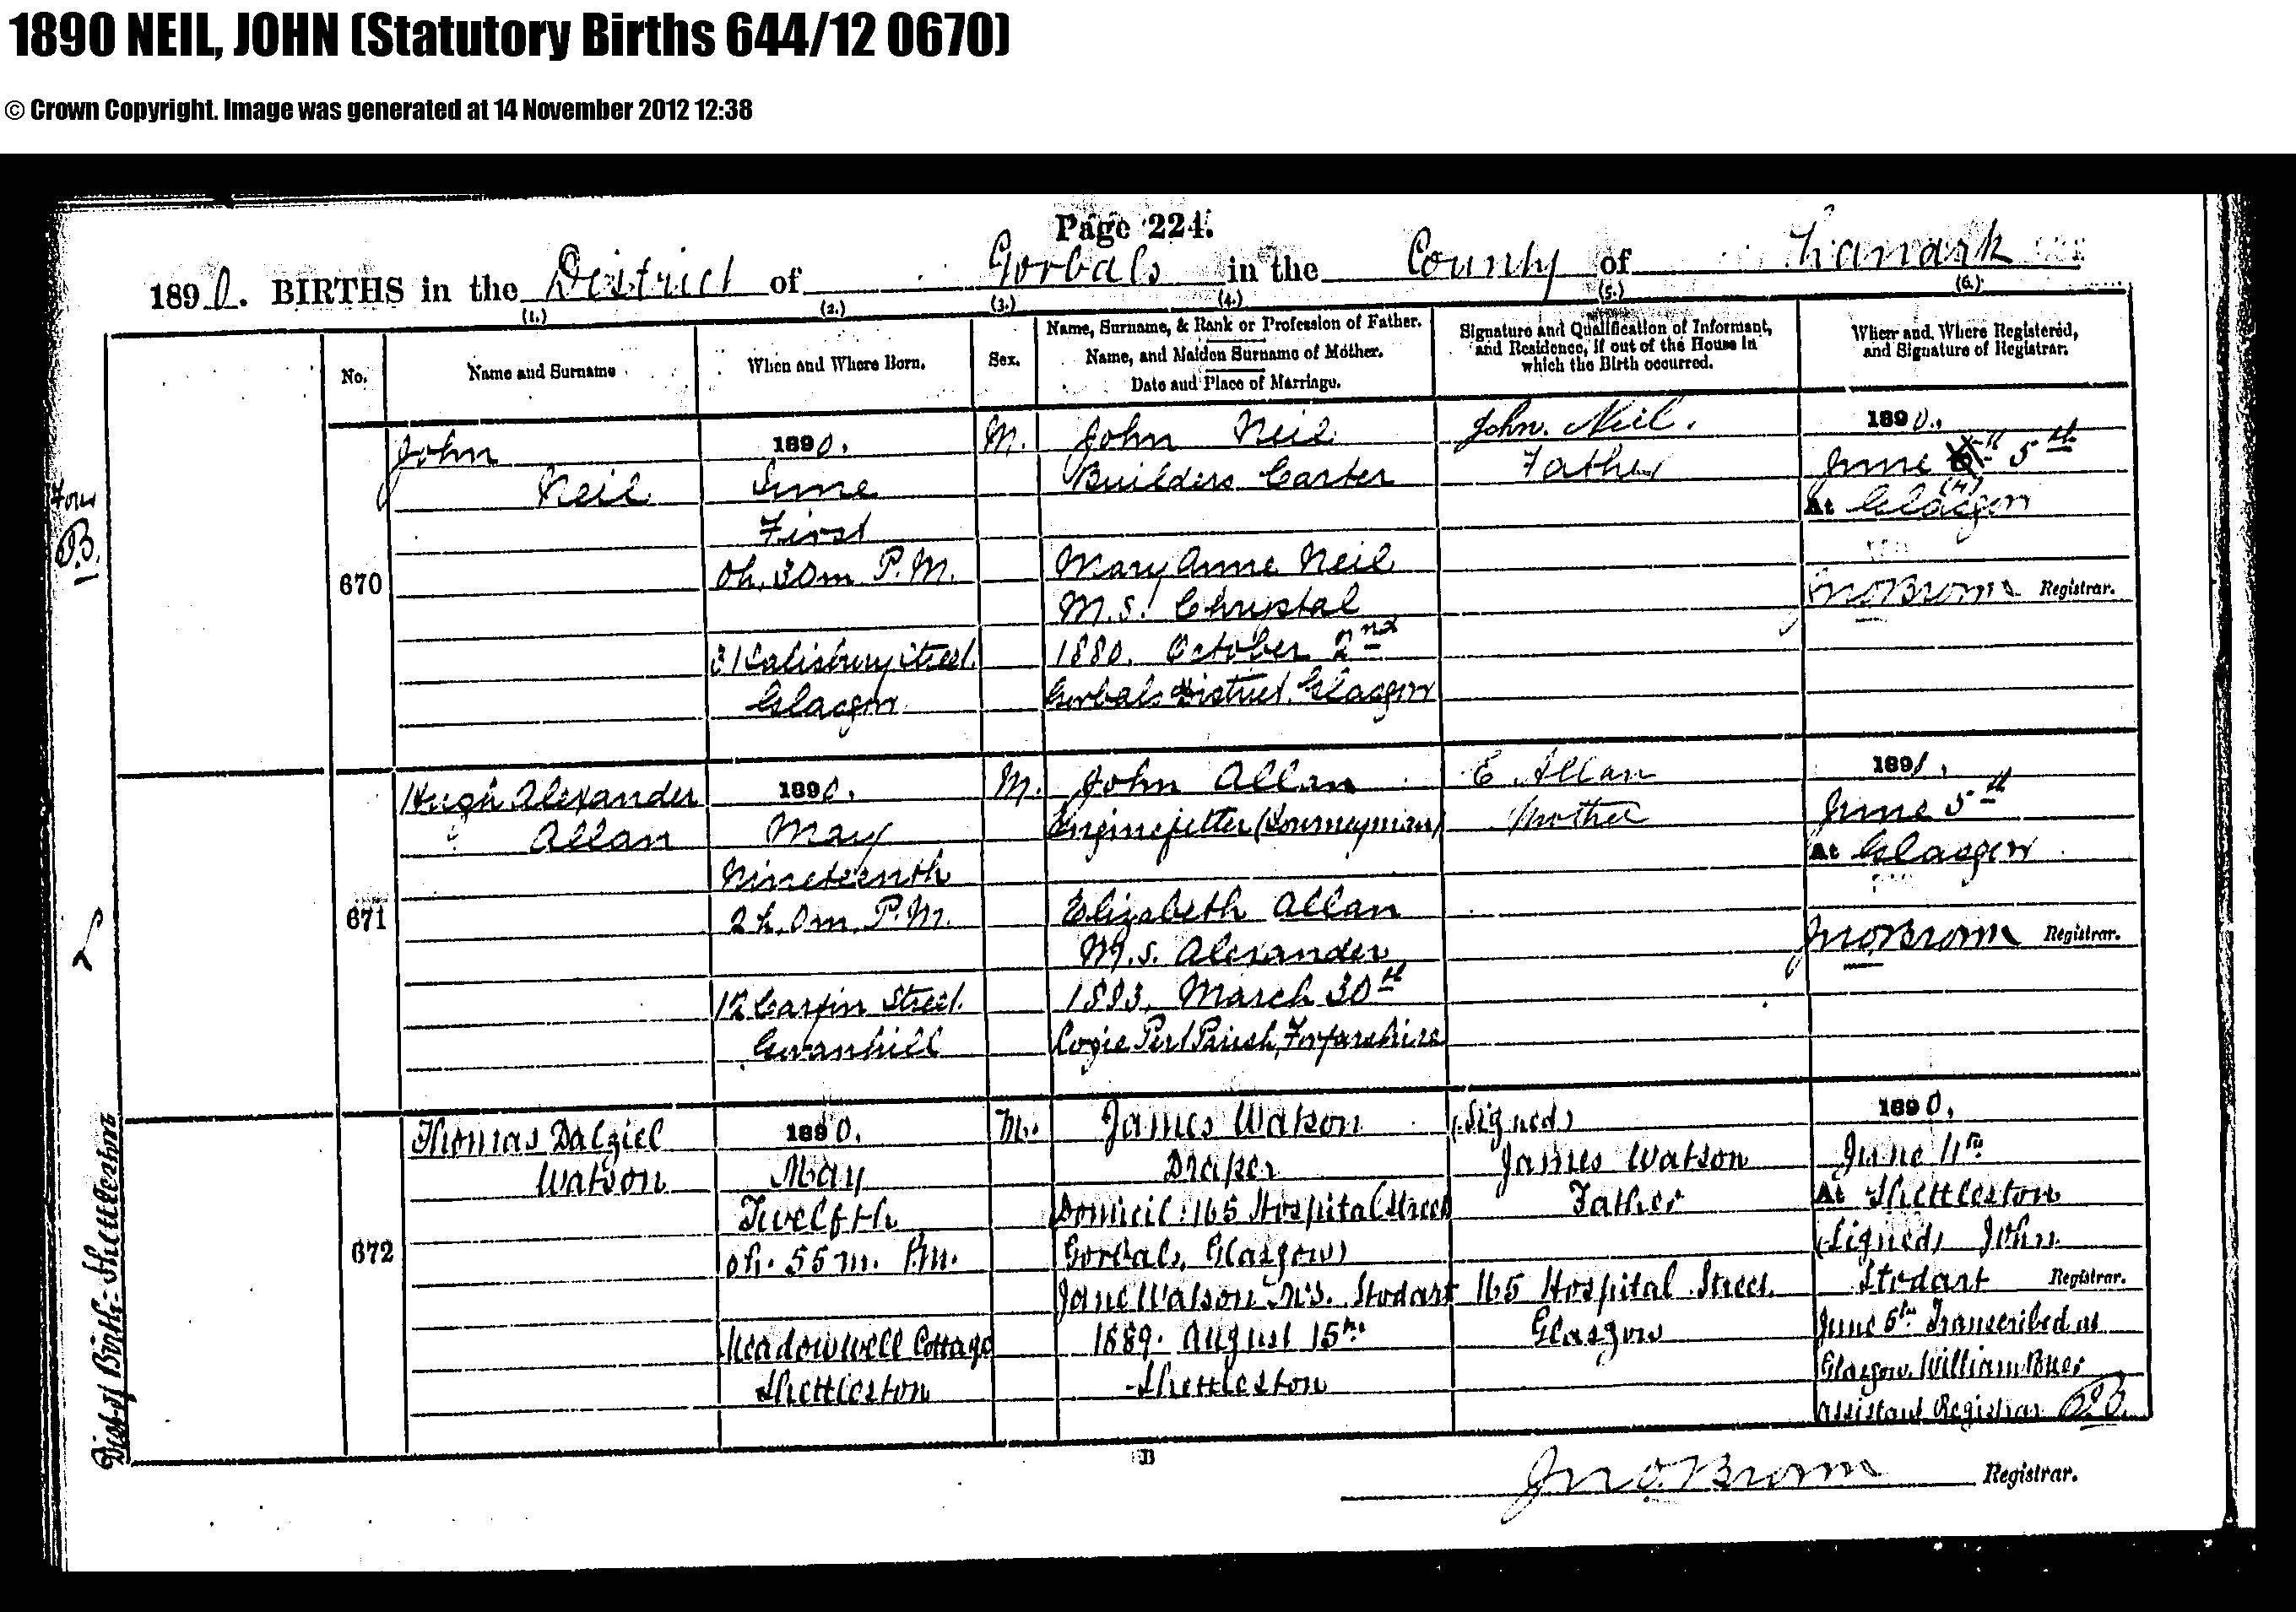 1890 NEIL, JOHN (Statutory Births 644/12 0670)
© Crown Copyright. Image was generated at 14 November 2012 12:38
Page 224.
1890. BIRTHS in the District of Gorbals in the County of Lanark
(1.) (2.) (3.) (4.) (5.) (6.)
No.
Name and Surname
When and Where Born.
Sex.
Name, Surname, & Rank or Profession of Father.
Name, and Maiden Surname of Mother.
Date and Place of Marriage.
Signature and Qualification of Informant,
and Residence, if out of the House in
which the Birth occurred.
When and Where Registered,
and Signature of Registrar.
670
John
Neil
1890.
June
First
0h. 30m P.M.
31 Salisbury Street
Glasgow
M.
John Neil
Builders Carter
Mary Anne Neil
M.S. Chrystal
1880. October 2nd
Gorbals District, Glasgow
John Neil.
Father
1890.
June 5th
At Glasgow
Jno Brown Registrar.
671
Hugh Alexander
Allan
1890.
May
Nineteenth
2h. 0m. P.M.
12 Carfin Street
Govanhill
M.
John Allan
Enginefitter (Journeyman)
Elizabeth Allan
M.S. Alexander
1883, March 30th
Logie Pert Parish, Forfarshire
E. Allan
Mother
189
June 5th
At Glasgow
Jno Brown Registrar.
672
Thomas Dalziel
Watson
1890.
May
Twelfth
0h. 55m. P.M.
Meadowwell Cottage
Shettleston
M.
James Watson
Draper
Domicil: 165 Hospital Street
Gorbals, Glasgow)
Jane Watson M.S. Stodart
1889. August 15th
Shettleston
(Signed)
James Watson
Father
165 Hospital Street
Glasgow
1890.
June
At Shettleston
(Signed) John
Stodart Registrar.
June 5th Transcribed at
Glasgow. William
Assistant Registrar J.B.
Dist of Birth:- Shettleston
B
Jno Brown Registrar.